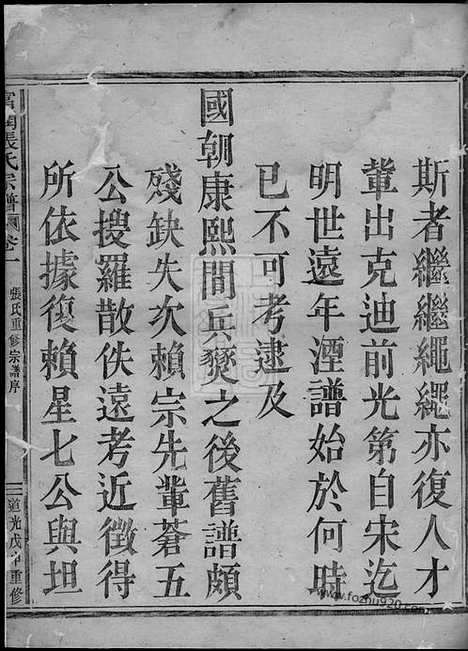 斯者繼繼繩繩亦復人才
輩出克迪前光第自宋迄
明世遠年湮譜始於何時
已不可考逮及
國朝康熙間兵燹之後舊譜頗
殘缺失次賴宗先輩蒼五
公搜羅散佚遠考近徵得
所依據復賴星七公與坦
張氏宗譜 卷一
張氏重修宗譜序
一
道光戊 重修
www.fozhu920.com